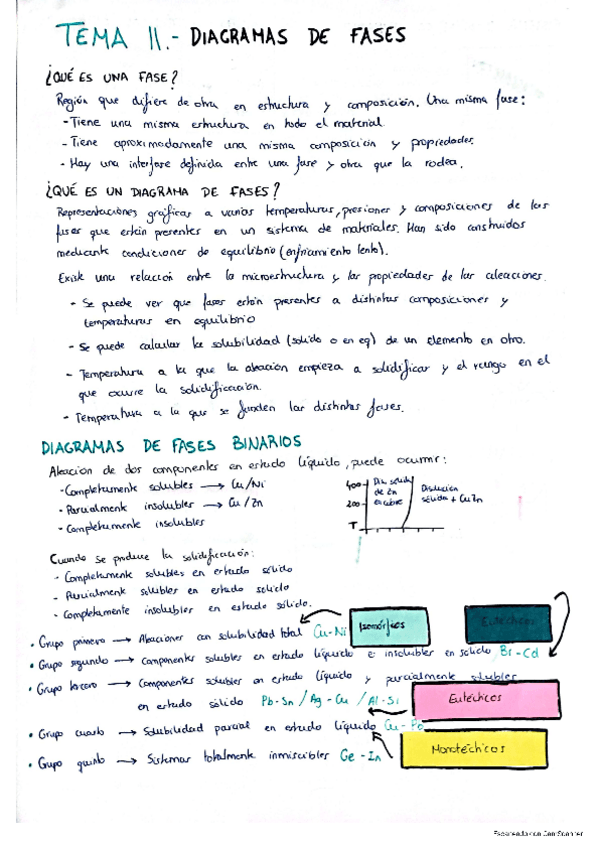 TEMA 11.- DIAGRAMAS DE FASES
¿QUÉ ES UNA FASE?
Región que difiere de otra en estructura y composición. Una misma fase:
- Tiene una misma estructura en todo el material
- Tiene aproximadamente una misma composición y propiedades.
- Hay una interfase definida entre una fase y otra que la rodea.
¿QUÉ ES UN DIAGRAMA DE FASES?
Representaciones gráficas a varias temperaturas, presiones y composiciones de las
fases que están presentes en un sistema de materiales. Han sido construidos
mediante condiciones de equilibrio (enfriamiento lento).
Existe una relación entre la microestructura y las propiedades de las aleaciones.
- Se puede ver que fases están presentes a distintas composiciones y
temperaturas en equilibrio
- Se puede calcular la solubilidad (solido o en eq) de un elemento en otro.
- Temperatura a la que la aleación empieza a solidificar y el rango en el
que ocurre la solidificación.
- Temperatura a la que se funden las distintas fases.
DIAGRAMAS DE FASES BINARIOS
Aleación de dos componentes en estado líquido, puede ocurrir:
- Completamente solubles → Cu/Ni
- Parcialmente insolubles → Cu/Zn
- Completamente insolubles
400
200
T
Dis. sólida
de Zn
en cobre
Disolución
sólida + CuZn
Cuando se produce la solidificación:
- Completamente solubles en estado sólido
- Parcialmente solubles en estado solido
- Completamente insolubles en estado sólido.
• Grupo primero → Aleaciones con solubilidad total Cu-Ni
Isomórficos
Eutécticos
• Grupo segundo → Componentes solubles en estado líquido e insolubles en solido Bi-Cd
• Grupo tercero → Componentes solubles en estado líquido y parcialmente solubles
en estado sólido Pb-Sn / Ag-Cu / Al-Si
Eutécticos
• Grupo cuarto → Solubilidad parcial en estado líquido Cu-Pb
Monotécticos
• Grupo quinto → Sistemas totalmente inmiscibles Ge-Zn
Escaneado con CamScanner